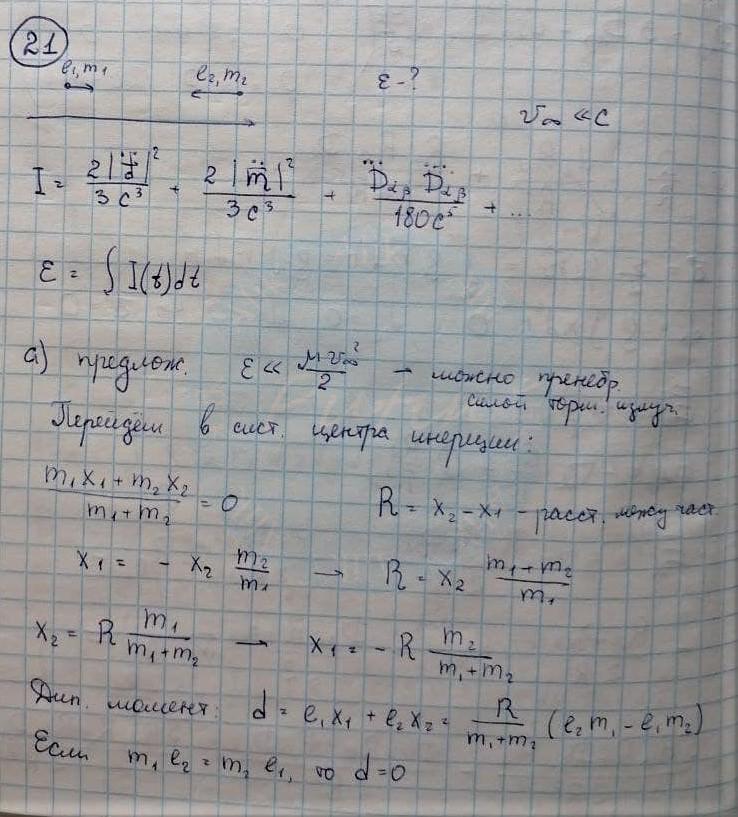 21
e₁, m₁ e₂, m₂ ε - ?
v∞ << c
I = 2|d̈|²/3c³ + 2|m̈|²/3c³ + D⃛αβ D⃛αβ/180c⁵ + ...
ε = ∫ I(t)dt
а) предлож. ε << μv∞²/2 – можно пренебр.
силой торм. излуч.
Перейдём в сист. центра инерции:
(m₁x₁ + m₂x₂)/(m₁ + m₂) = 0 R = x₂ - x₁ - расст. между част.
x₁ = - x₂ m₂/m₁ → R = x₂ (m₁ + m₂)/m₁
x₂ = R m₁/(m₁ + m₂) → x₁ = - R m₂/(m₁ + m₂)
Дип. момент: d = e₁x₁ + e₂x₂ = R/(m₁ + m₂) (e₂m₁ - e₁m₂)
Если m₁e₂ = m₂e₁, то d = 0